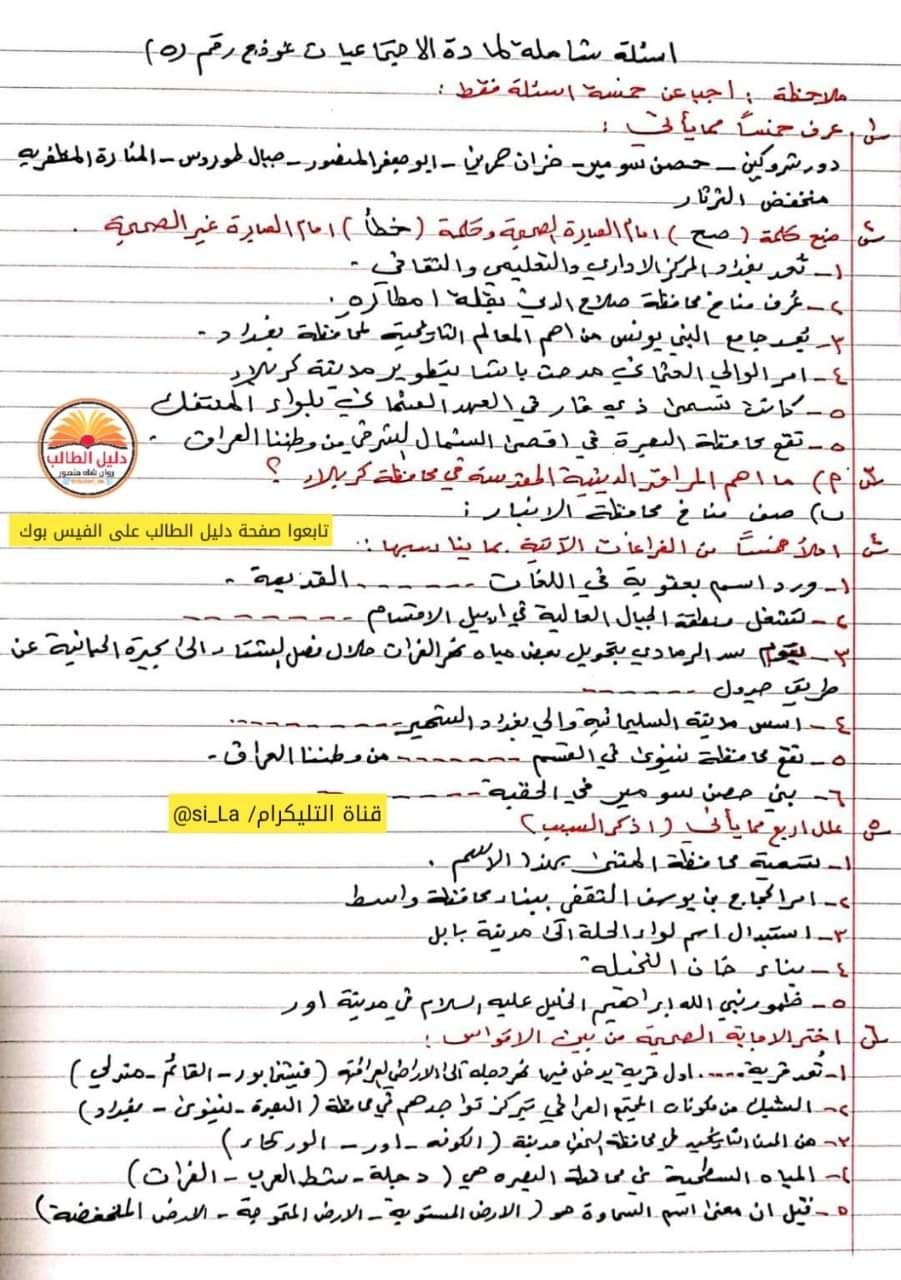 اسئلة شاملة لمادة الاجتماعيات نموذج رقم (٥)
ملاحظة : اجب عن خمسة اسئلة فقط :
س١ عرف خمساً مما يأتي :
دور شروكين - حصن سومير - خزان حمرين - ابو جعفر المنصور - جبال طوروس - المنارة المظفرية
منخفض الثرثار
س٢ ضع كلمة (صح) امام العبارة الصحيحة وكلمة (خطأ) امام العبارة غير الصحيحة .
١- تعد بغداد المركز الاداري والتعليمي والثقافي .
٢- عُرف مناخ محافظة صلاح الدين بقلة امطاره .
٣- يُعد جامع النبي يونس من اهم المعالم التاريخية لمحافظة بغداد .
٤- امر الوالي العثماني مدحت باشا بتطوير مدينة كربلاء
٥- كانت تسمى ذي قار في العهد العثماني بلواء المنتفك
٥- تقع محافظة البصرة في اقصى الشمال الشرقي من وطننا العراق .
س٣ أ) ما اهم المراقد الدينية المقدسة في محافظة كربلاء ؟
ب) صف مناخ محافظة الانبار :
دليل الطالب
روان شاه منصور
تابعوا صفحة دليل الطالب على الفيس بوك
س٤ املأ خمساً من الفراغات الآتية بما يناسبها :
١- ورد اسم بعقوبة في اللغات ------- القديمة .
٢- تشغل منطقة الجبال العالية في اربيل الاقسام -------
٣- يقوم سد الرمادي بتحويل بعض مياه نهر الفرات خلال فصل الشتاء الى بحيرة الحبانية عن
طريق جدول -------
٤- اسس مدينة السليمانية والي بغداد الشهير -------
٥- تقع محافظة نينوى في القسم ------- من وطننا العراق .
٦- بني حصن سومير في الحقبة -------
قناة التليكرام/ @si_La
س٥ علل اربع مما يأتي (اذكر السبب)
١- تسمية محافظة المثنى بهذا الاسم .
٢- امر الحجاج بن يوسف الثقفي ببناء محافظة واسط
٣- استبدال اسم لواء الحلة الى مدينة بابل
٤- بناء خان النخيلة
٥- ظهور نبي الله ابراهيم الخليل عليه السلام في مدينة اور
س٦ اختر الاجابة الصحيحة من بين الاقواس :
١- تُعد قرية ..... اول قرية يدخل فيها نهر دجلة الى الاراضي العراقية (فيشخابور - القائم - مندلي)
٢- الشبك من مكونات المجتمع العراقي يتركز تواجدهم في محافظة (البصرة - نينوى - بغداد)
٣- من المدن التاريخية في محافظة المثنى مدينة (الكوفة - اور - الوركاء)
٤- المياه السطحية في محافظة البصرة هي (دجلة - شط العرب - الفرات)
٥- قيل ان معنى اسم السماوة هو (الارض المستوية - الارض المتموجة - الارض المنخفضة)